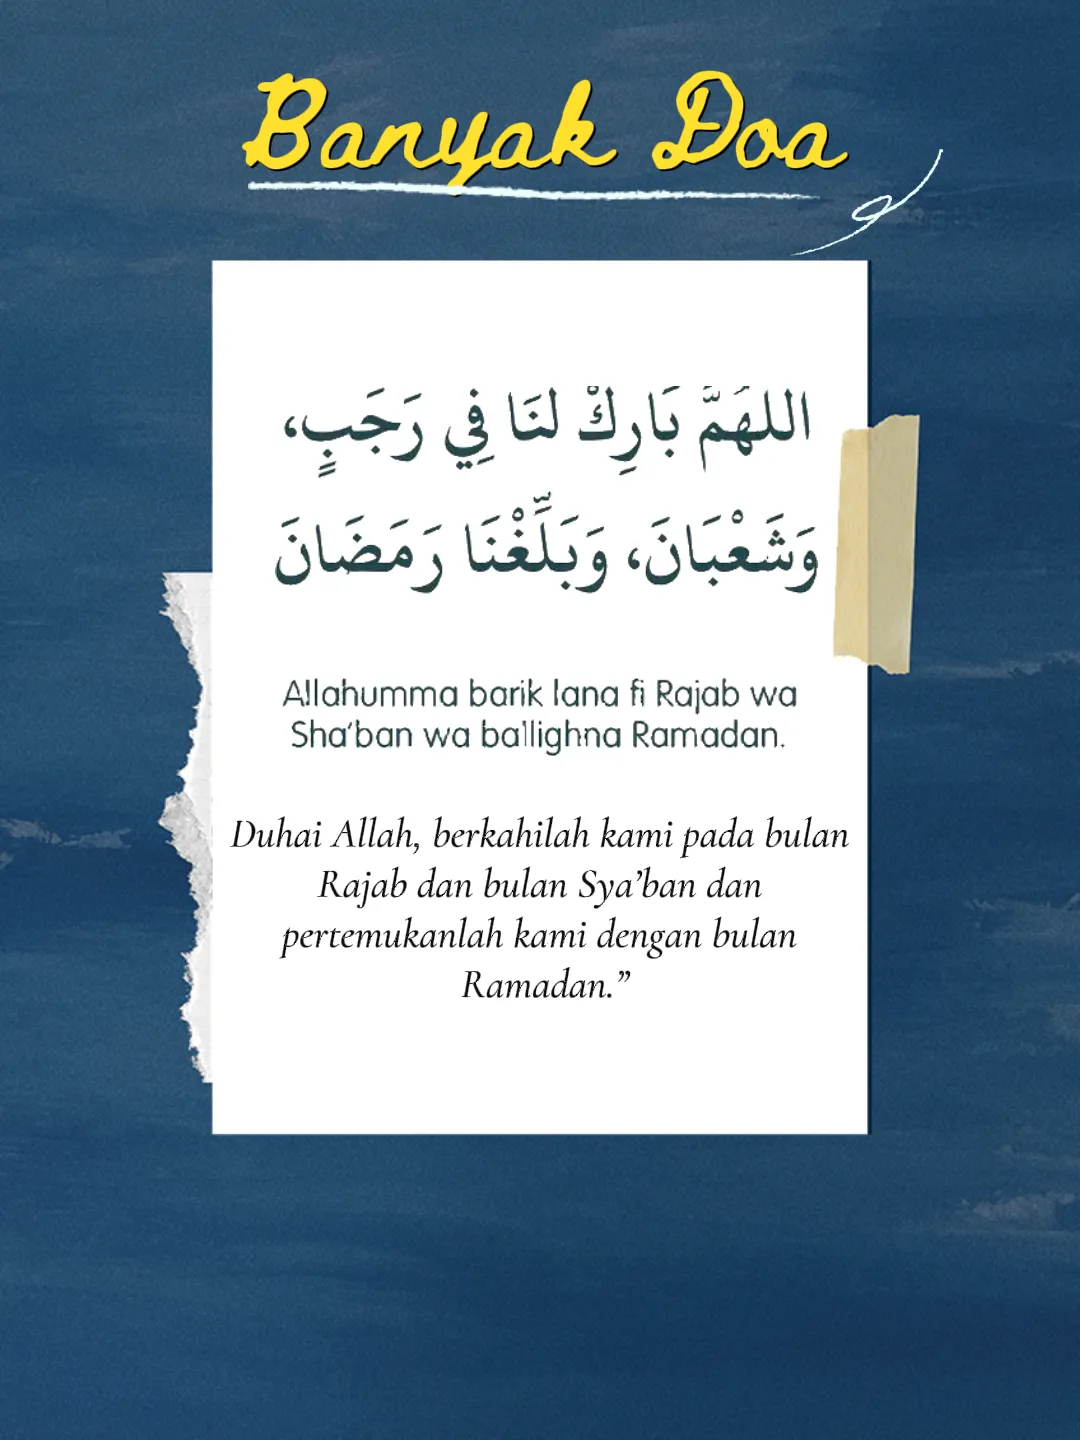 Banyak Doa
اللهُمَّ بَارِكْ لَنَا فِي رَجَبٍ،
وَشَعْبَانَ، وَبَلِّغْنَا رَمَضَانَ
Allahumma barik lana fi Rajab wa
Sha'ban wa ballighna Ramadan.
Duhai Allah, berkahilah kami pada bulan
Rajab dan bulan Sya’ban dan
pertemukanlah kami dengan bulan
Ramadan.”